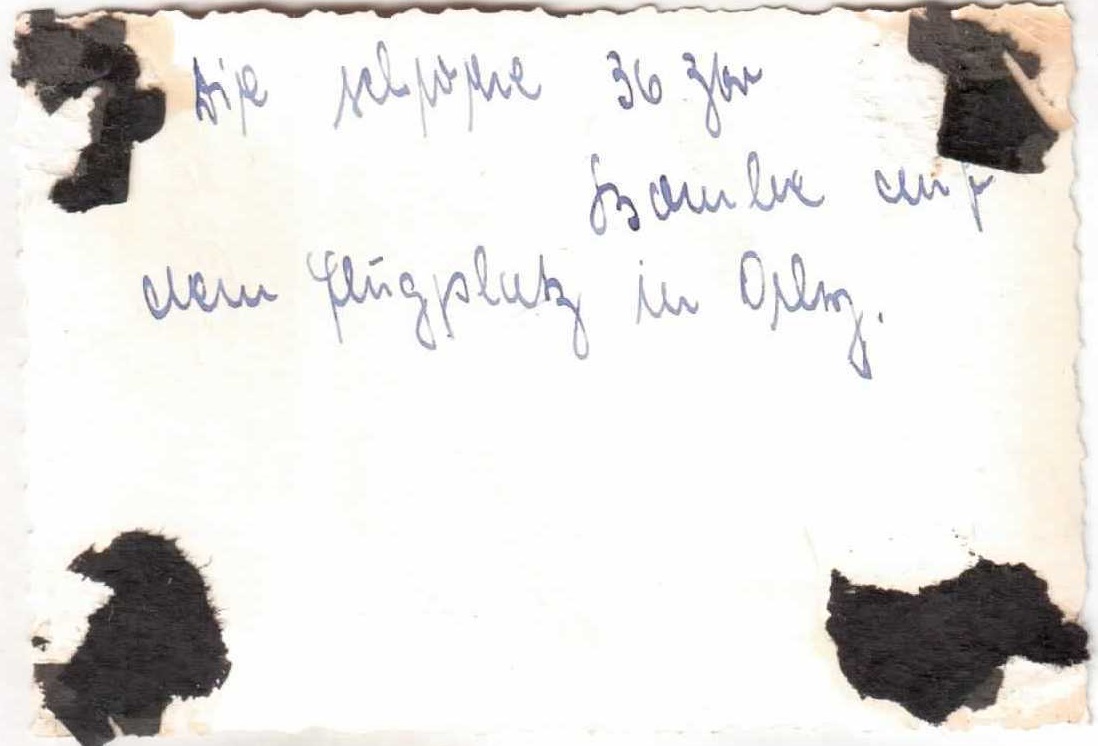 Die schwere 36 Ztn
Bombe auf
dem Flugplatz in